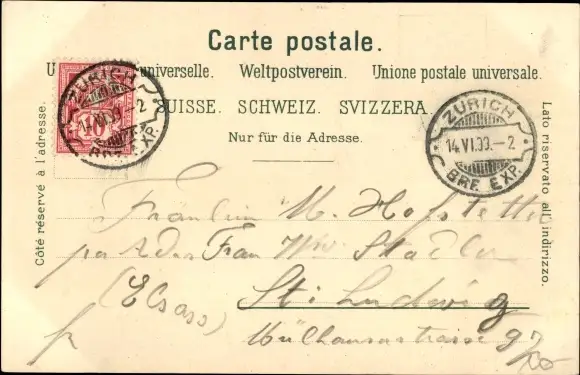 Carte postale.
universelle. Weltpostverein. Unione postale universale.
SUISSE. SCHWEIZ. SVIZZERA.
Nur für die Adresse.
Côté réservé à l'adresse.
Lato riservato all'indirizzo.
ZÜRICH
10
ZÜRICH
14.VI.99.-2
BRF. EXP.
Fräulein M. Hofstetter
per Adr Frau Wwe Stadler
(Elsass) St. Ludwig
Mülhauserstrasse